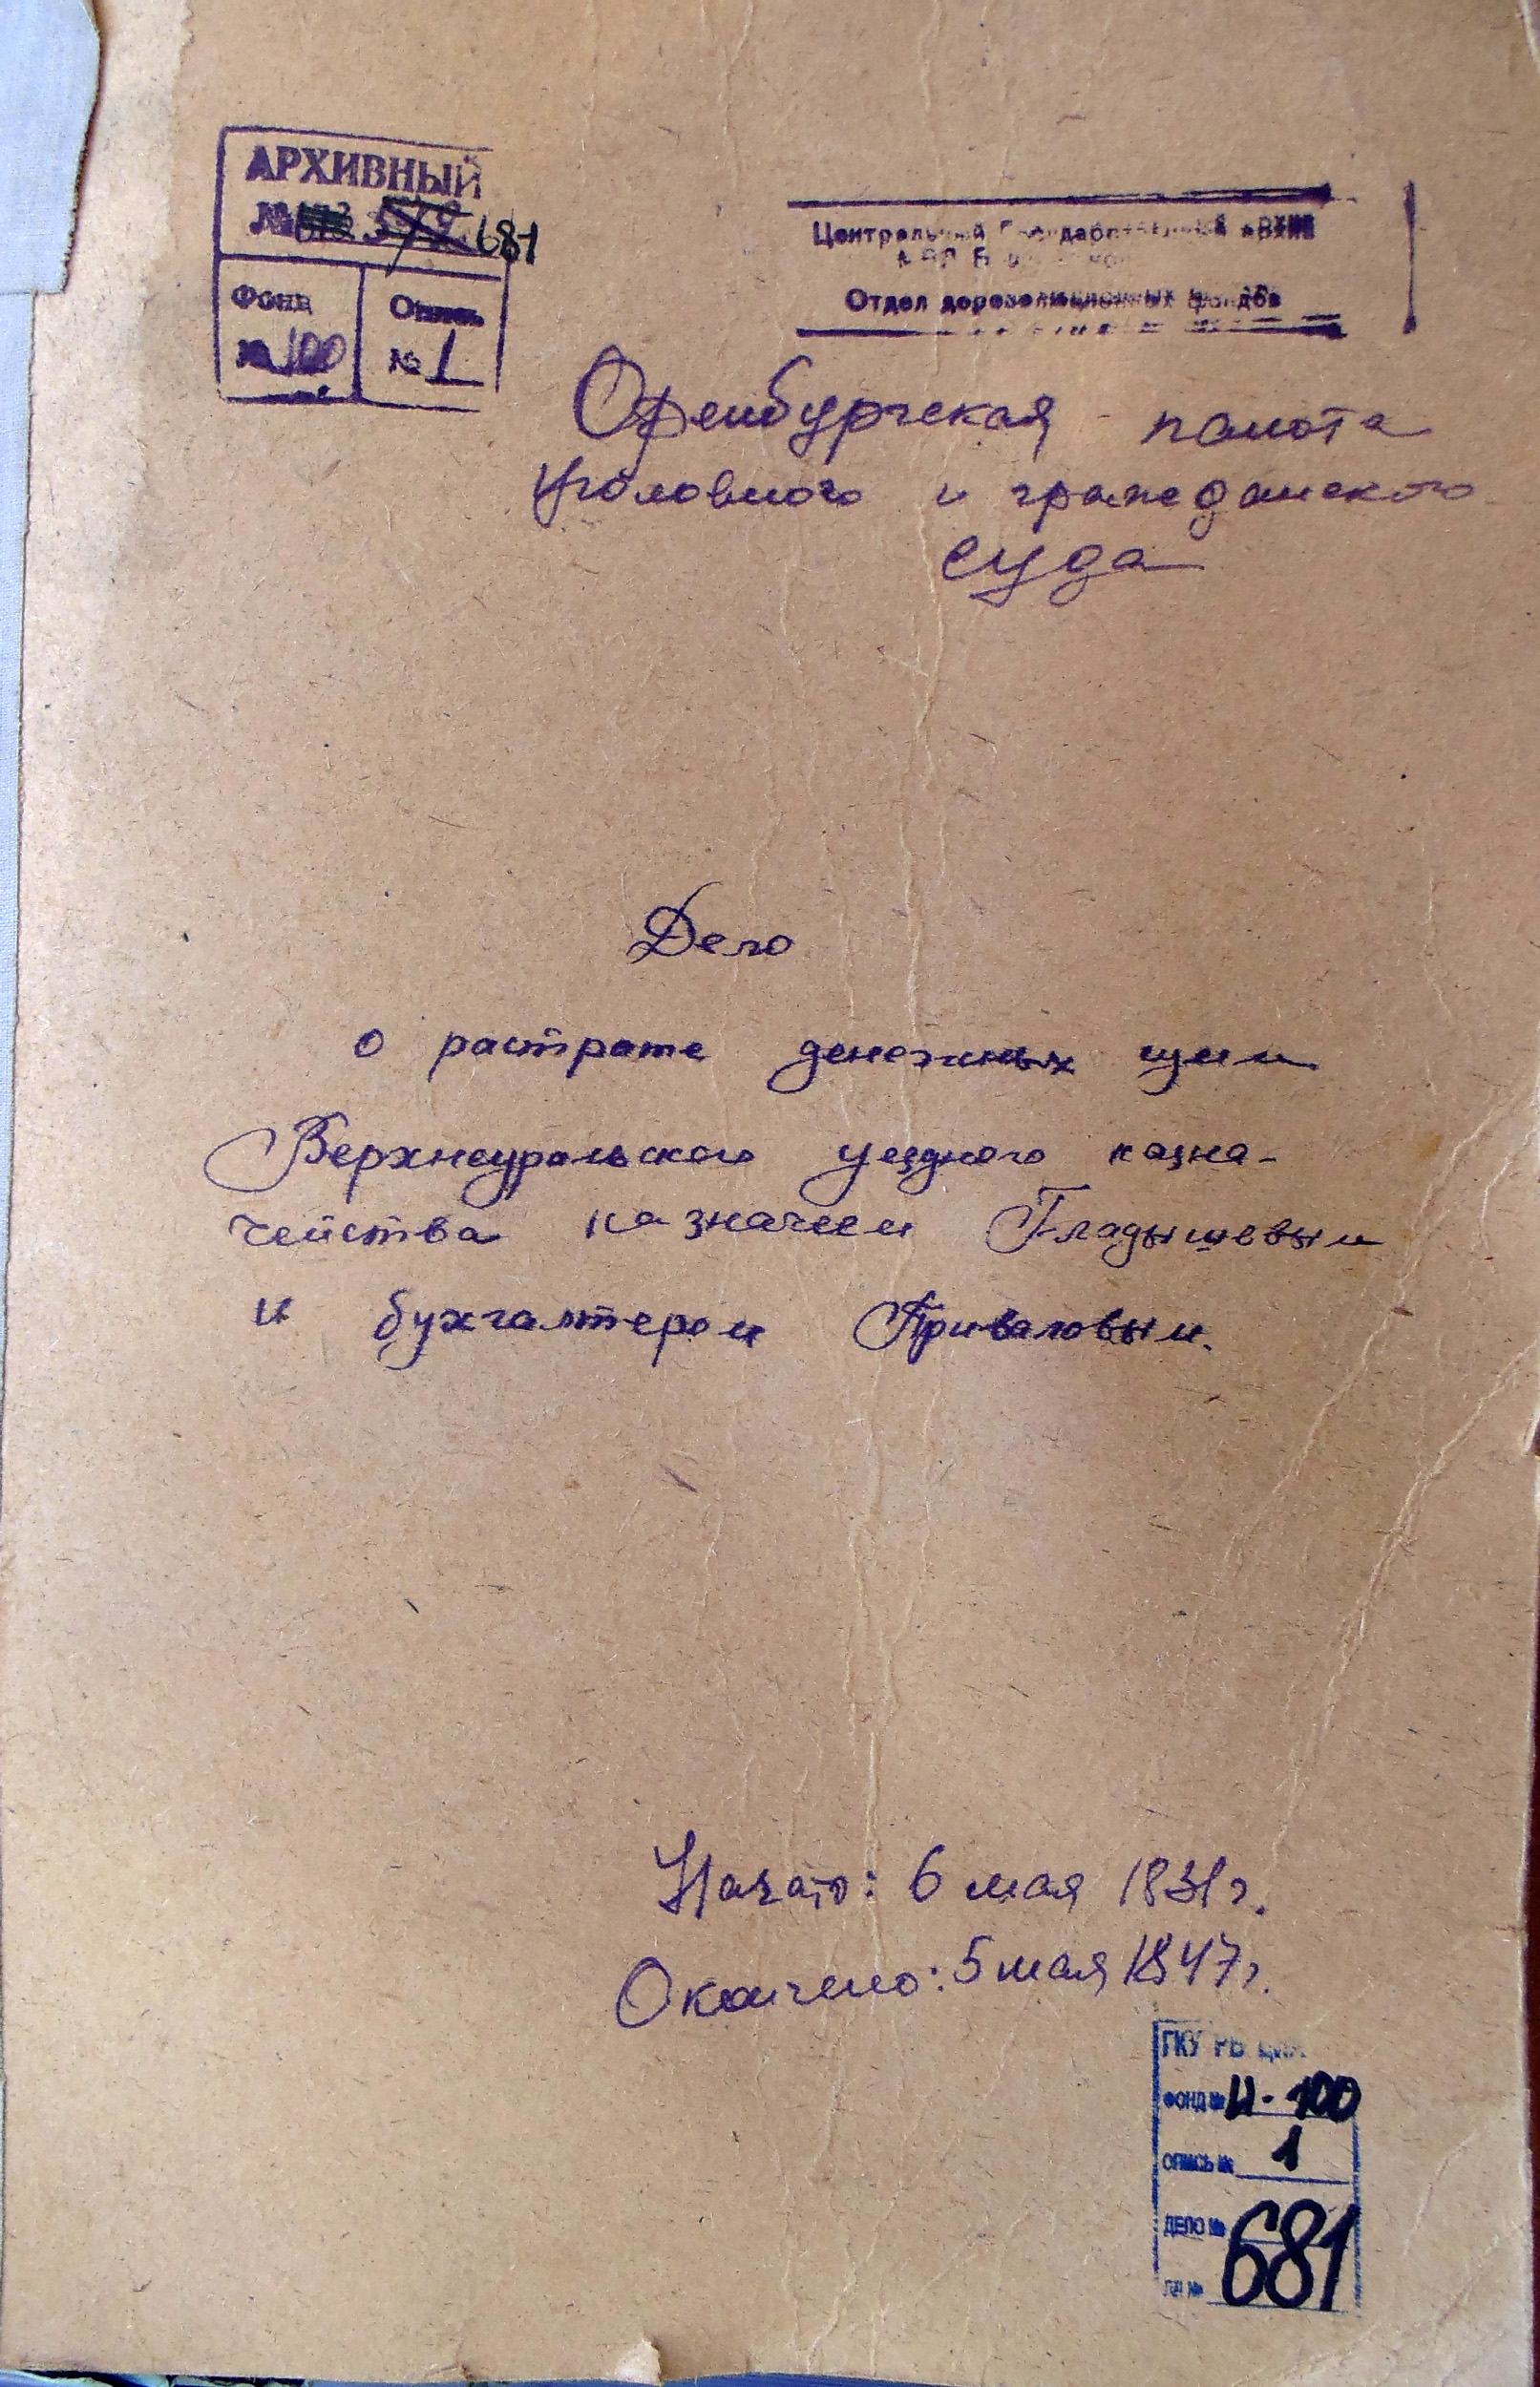 АРХИВНЫЙ
№ 579 681
Фонд
№ 100
Опись
№ 1
Центральный Государственный архив
Отдел дореволюционных фондов
Оренбургская палата
уголовного и гражданского
суда
Дело
о растрате денежных сумм
Верхнеуральского уездного казна-
чейства казначеем Гладышевым
и бухгалтером Приваловым.
Начато: 6 мая 1831 г.
Окончено: 5 мая 1847 г.
ГКУ РБ ЦИА
ФОНД № И-100
ОПИСЬ № 1
ДЕЛО № 681